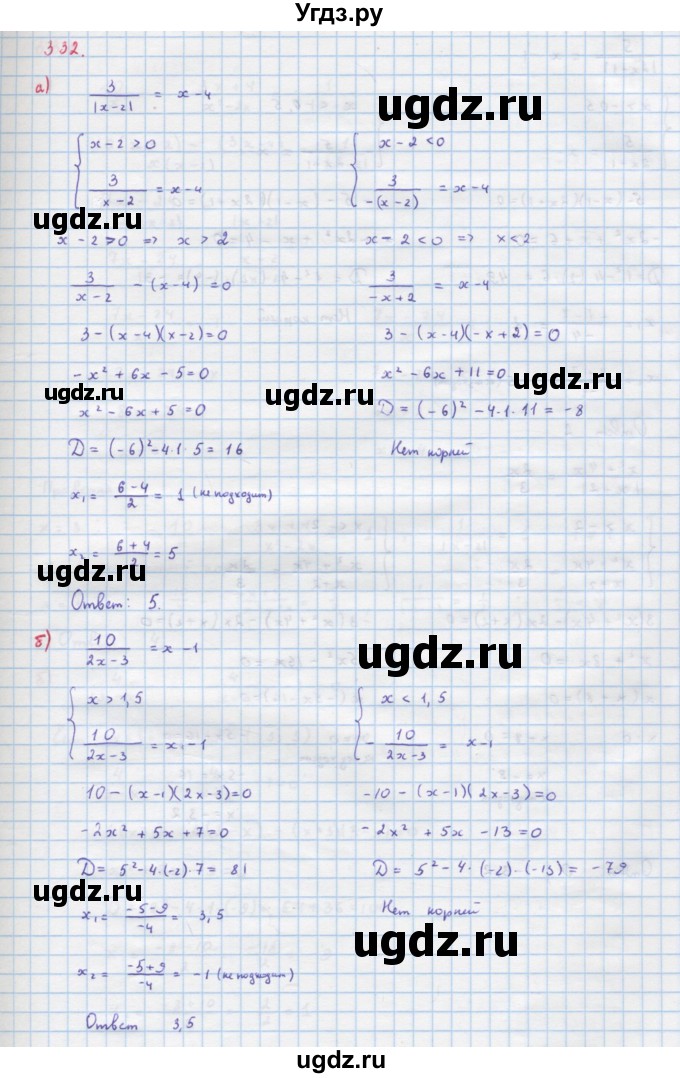 Угдз.ру
332.
а) 3/|x-2| = x-4
ugdz.ru
{ x-2>0
3/(x-2) = x-4
{ x-2<0
3/(-(x-2)) = x-4
ugdz.ru
ugdz.ru
x-2>0 => x>2
x-2<0 => x<2
3/(x-2) - (x-4) = 0
3/(-x+2) = x-4
3-(x-4)(x-2)=0
3-(x-4)(-x+2)=0
-x²+6x-5=0
x²-6x+11=0
ugdz.ru
ugdz.ru
ugdz.ru
x²-6x+5=0
D=(-6)²-4·1·11=-8
D=(-6)²-4·1·5=16
Нет корней
x₁=(6-4)/2=1 (не подходит)
ugdz.ru
x₂=(6+4)/2=5
ugdz.ru
Ответ: 5.
б) 10/(2x-3) = x-1
ugdz.ru
{ x>1,5
10/(2x-3) = x-1
{ x<1,5
-10/(2x-3) = x-1
ugdz.ru
ugdz.ru
10-(x-1)(2x-3)=0
-10-(x-1)(2x-3)=0
-2x²+5x+7=0
-2x²+5x-13=0
D=5²-4·(-2)·7=81
D=5²-4·(-2)·(-13)=-79
ugdz.ru
x₁=(-5-9)/-4=3,5
Нет корней
ugdz.ru
x₂=(-5+9)/-4=-1 (не подходит)
ugdz.ru
Ответ 3,5
ugdz.ru